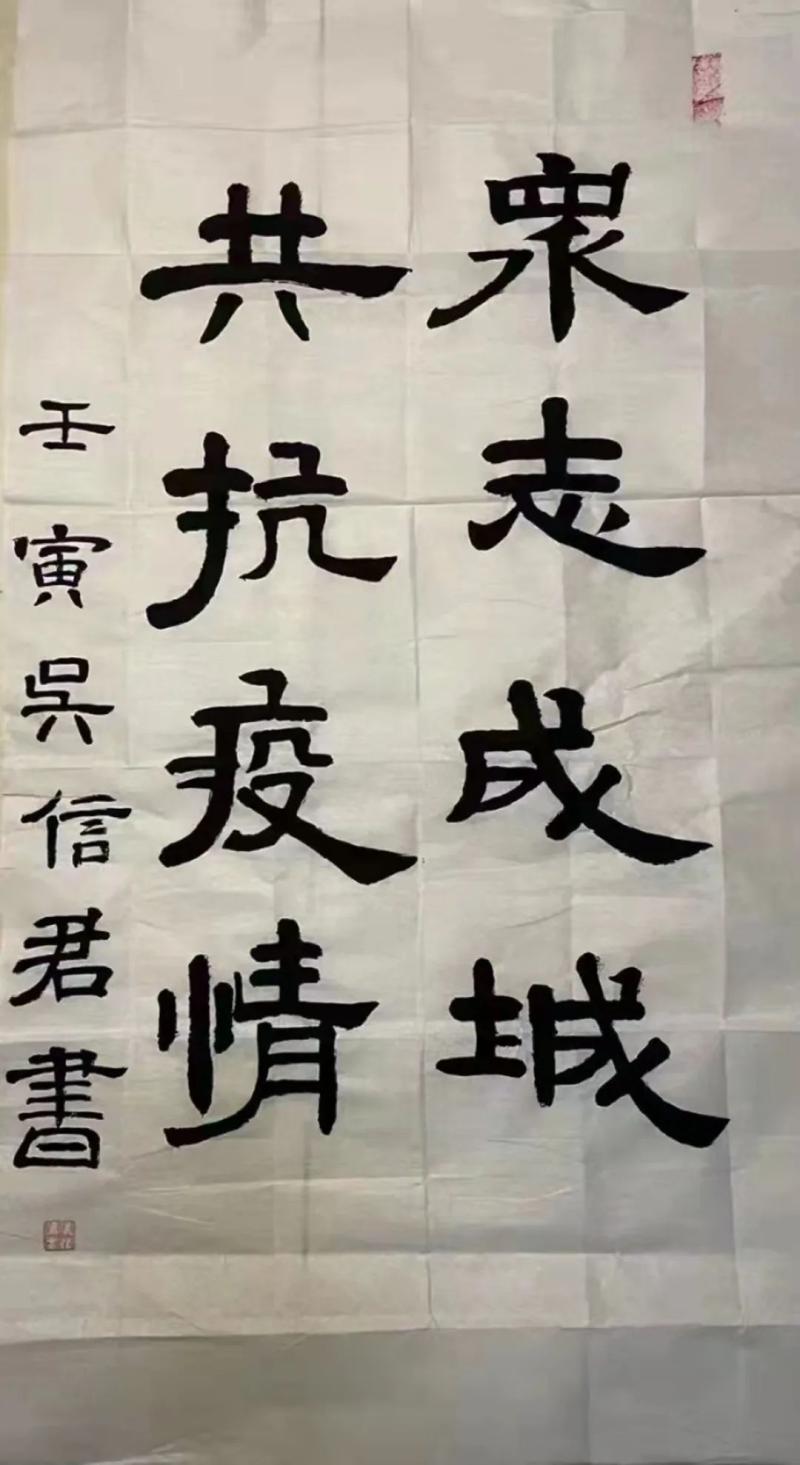 眾志成城
共抗疫情
壬寅吳信君書